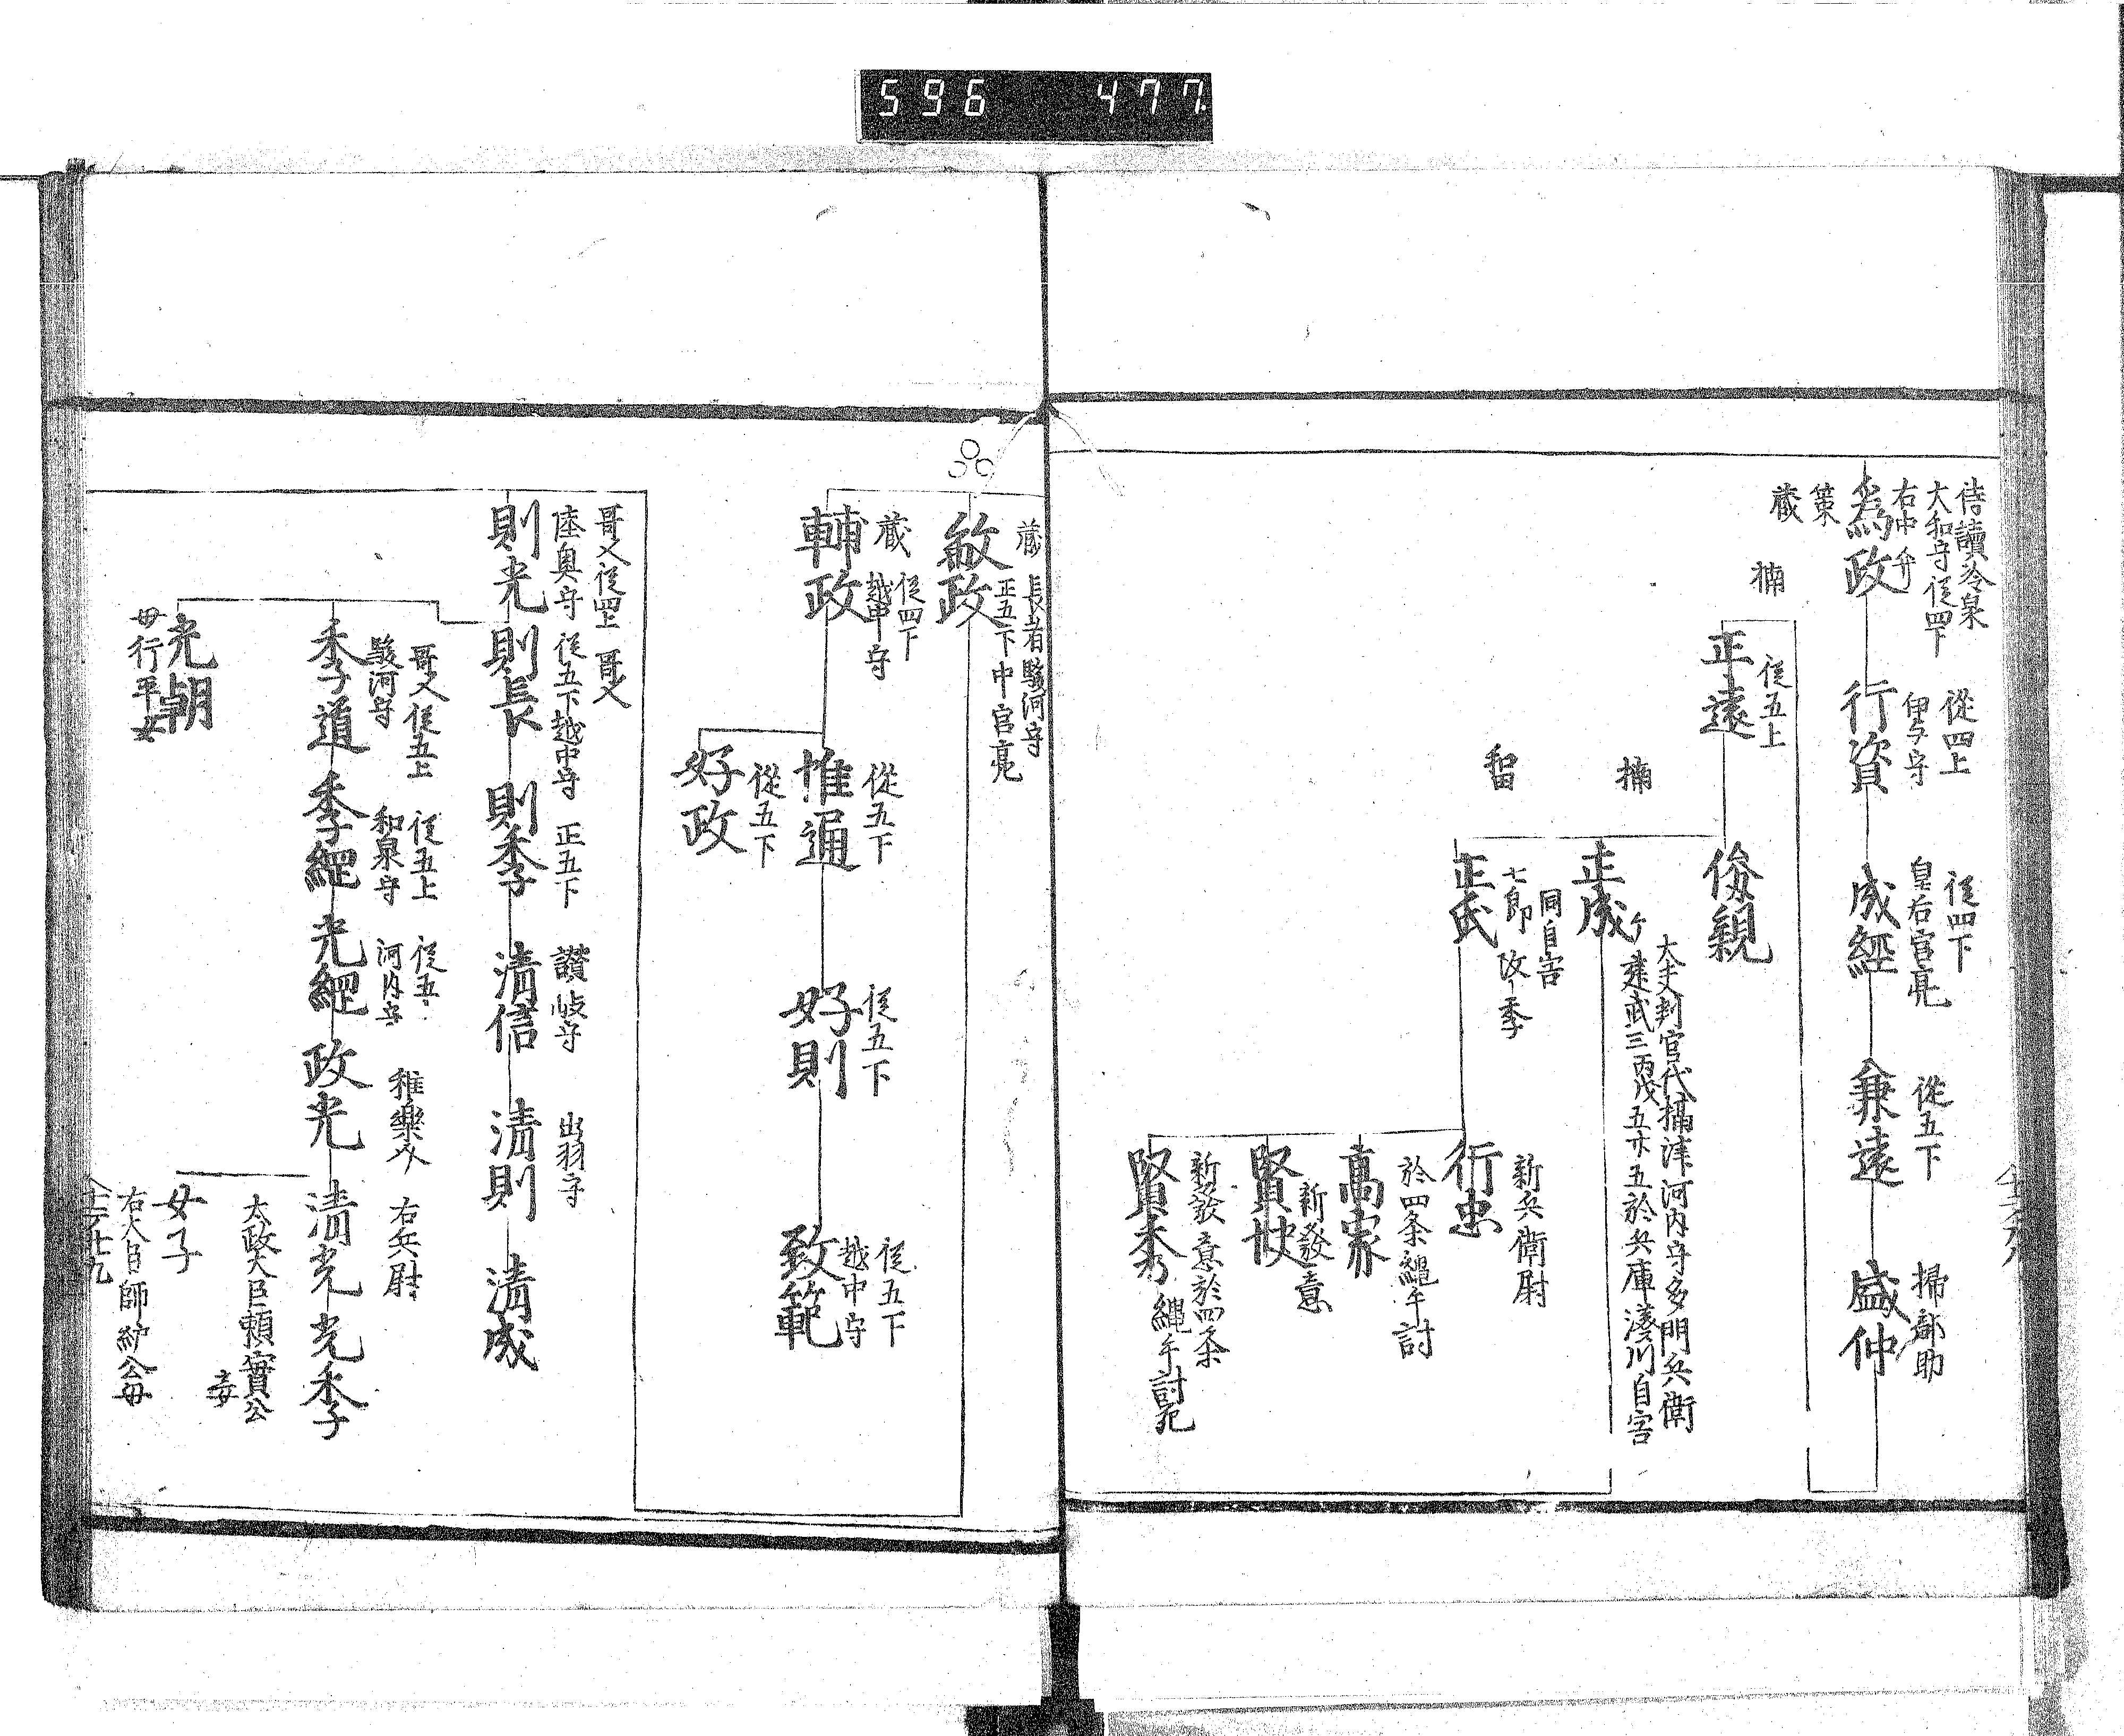 596 477.
侍讀冷泉
大和守従四下
右中弁
為政
策
蔵
従四上
伊与守
行資
従四下
皇后宮亮
成経
従五下
兼遠
掃部助
盛仲
楠
従五上
正遠
俊親
楠
正成
大夫判官代攝津河内守多門兵衛
建武三丙戊五廿五於兵庫湊川自害
同自害
七郎 改季
正氏
新兵衛尉
行忠
於四条縄手討
高家
新發意
賢快
新發意於四条
縄手討死
賢秀
蔵
長者駿河守
正五下中宮亮
敏政
蔵
従四下
越中守
輔政
従五下
惟通
従五下
好則
従五下
越中守
致範
従五下
好政
哥人従四上
陸奥守
則光
哥人
従五下越中守
則長
正五下
則季
讃岐守
清信
出羽守
清則
清成
哥人従五上
駿河守
季道
従五上
和泉守
季經
従五
河内守
光經
雅樂
政光
右兵尉
清光
光季
太政大臣頼實公
女子
右大臣師經公母
光朝
母行平女